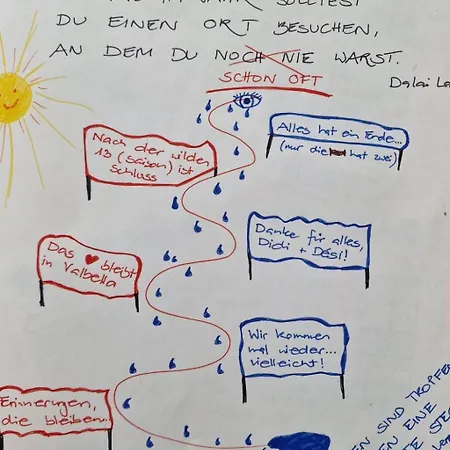 DU EINEN ORT BESUCHEN,
AN DEM DU NOCH NIE WARST.
SCHON OFT
Dalai La
Alles hat ein Ende...
(nur die hat zwei)
Nach der wilden
13 (Saison) ist
Schluss
Danke für alles,
Didi + Dési!
Das bleibt
in Valbella
Wir kommen
mal wieder...
vielleicht!
Erinnerungen,
die bleiben...
SIND TROPFE
EINE